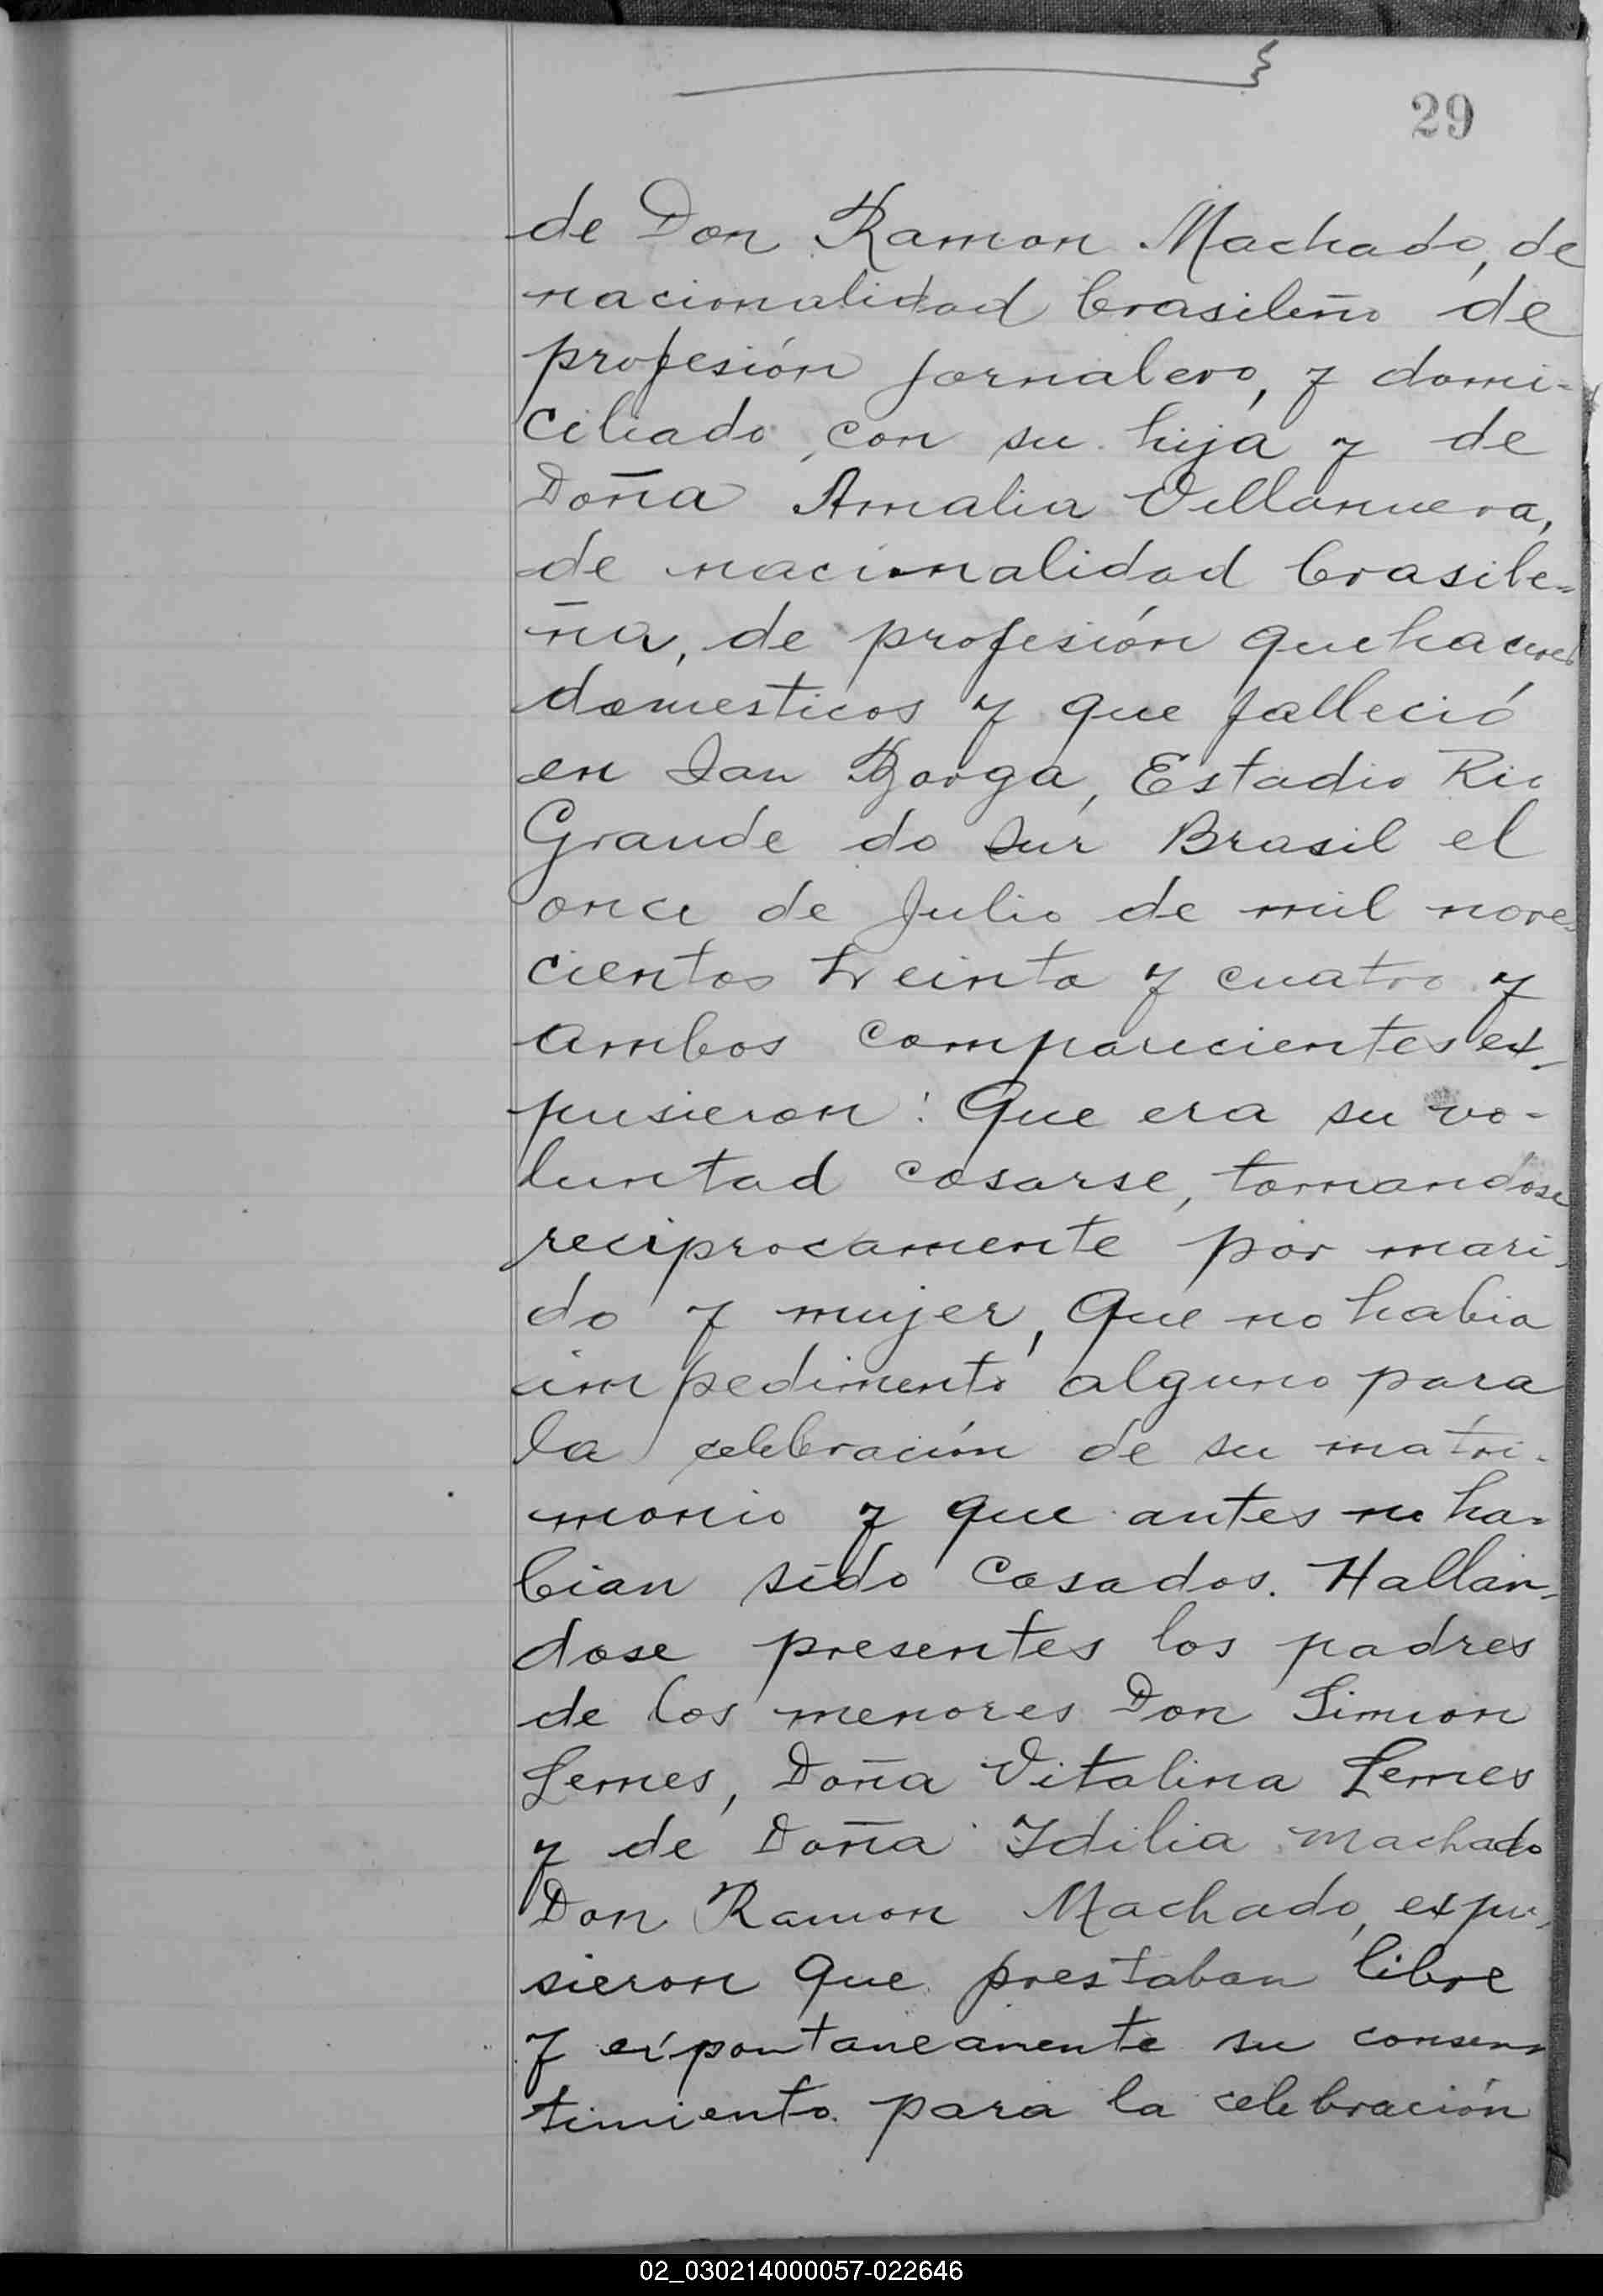 29
de Don Ramon Machado, de
nacionalidad brasileño de
profesión jornalero, y domi-
ciliado, con su hija y de
Doña Amalia Villanueva,
de nacionalidad brasile-
ña, de profesión quehaceres
domesticos y que falleció
en San Borga, Estadio Rio
Grande do Sur Brasil el
once de Julio de mil nove-
cientos treinta y cuatro y
ambos comparecientes ex-
pusieron: Que era su vo-
luntad casarse, tomandose
reciprocamente por mari-
do y mujer, Que no habia
impedimento alguno para
la celebración de su matri-
monio y que antes no ha-
bian sido casados. Hallan-
dose presentes los padres
de los menores Don Simion
Lemes, Doña Vitalina Lemes
y de Doña Idilia Machado
Don Ramon Machado, expu-
sieron que prestaban libre
y espontaneamente su consen-
timiento para la celebración
02_030214000057-022646